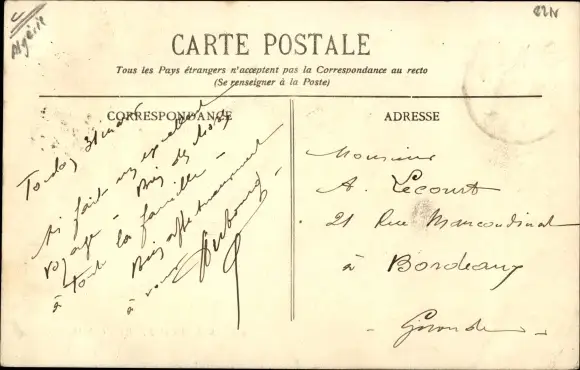 Algérie
CARTE POSTALE
Tous les Pays étrangers n'acceptent pas la Correspondance au recto
(Se renseigner à la Poste)
CORRESPONDANCE
ai fait un excellent
voyage - Bien des choses
à toute la famille -
Bien affectueusement
à vous
ADRESSE
Monsieur
A. Lecourt
21 Rue
à Bordeaux
- Gironde -